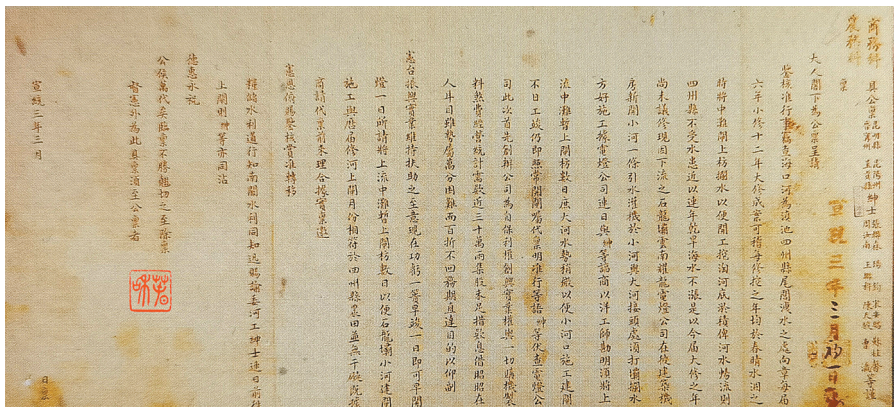 商務科
農務科
具公稟昆明州 昆陽州 晉寧州 呈貢縣紳士
等謹
稟
大人閣下為公稟呈請
鑒核准行事竊查海口河為滇池四州縣尾閭洩水之處向章每届
六年小修十二年大修成案可稽每修挖之年均於春晴水涸之
時將中灘閘上枋攔水以便開工挖淘河底於積俾河水暢流則
四州縣不受水患近以連年乾旱海水不漲是以今届大修之年
尚未議修現因下流之石龍壩雲南耀龍電燈公司在彼建築機
房新開小河一條引水灌機於小河與大河接頭處須打壩攔水
方好施工據電燈公司連日與紳等謟商以洋工師勘明須將上
流中灘暫上閘枋數日庶大河水勢稍緩以便小河口施工建閘
不日工竣仍即照常開閘囑代稟明准行等語紳等伏查電燈公
司此次首先創辦公司為自保利權創興實業權與一切購機製
料煞費經營統計需款近三十萬兩集股未足措款息借昭昭在
人耳目雖勢屬萬分困難而百折不回務期直達目的以仰副
憲台振興實業維持扶助之至意現在功虧一簣早竣一日即可早開
燈一日所請將上流中灘暫上閘枋數日以便石龍壩小河建閘
施工與歷届修河上閘月份相符於四州縣農田並無干礙既據
商請代稟前來理合據實稟邀
憲恩俯賜鑒核賞准轉移
糧儲水利道行知南關水利同知迅賜諭委河工紳士連日前行
上閘則紳等亦同沾
德惠永祝
公侯萬代矣臨稟不勝翹切之至除稟
督憲外為此具稟須至公稟者
宣統三年三月
日稟
宣統三年三月初一日